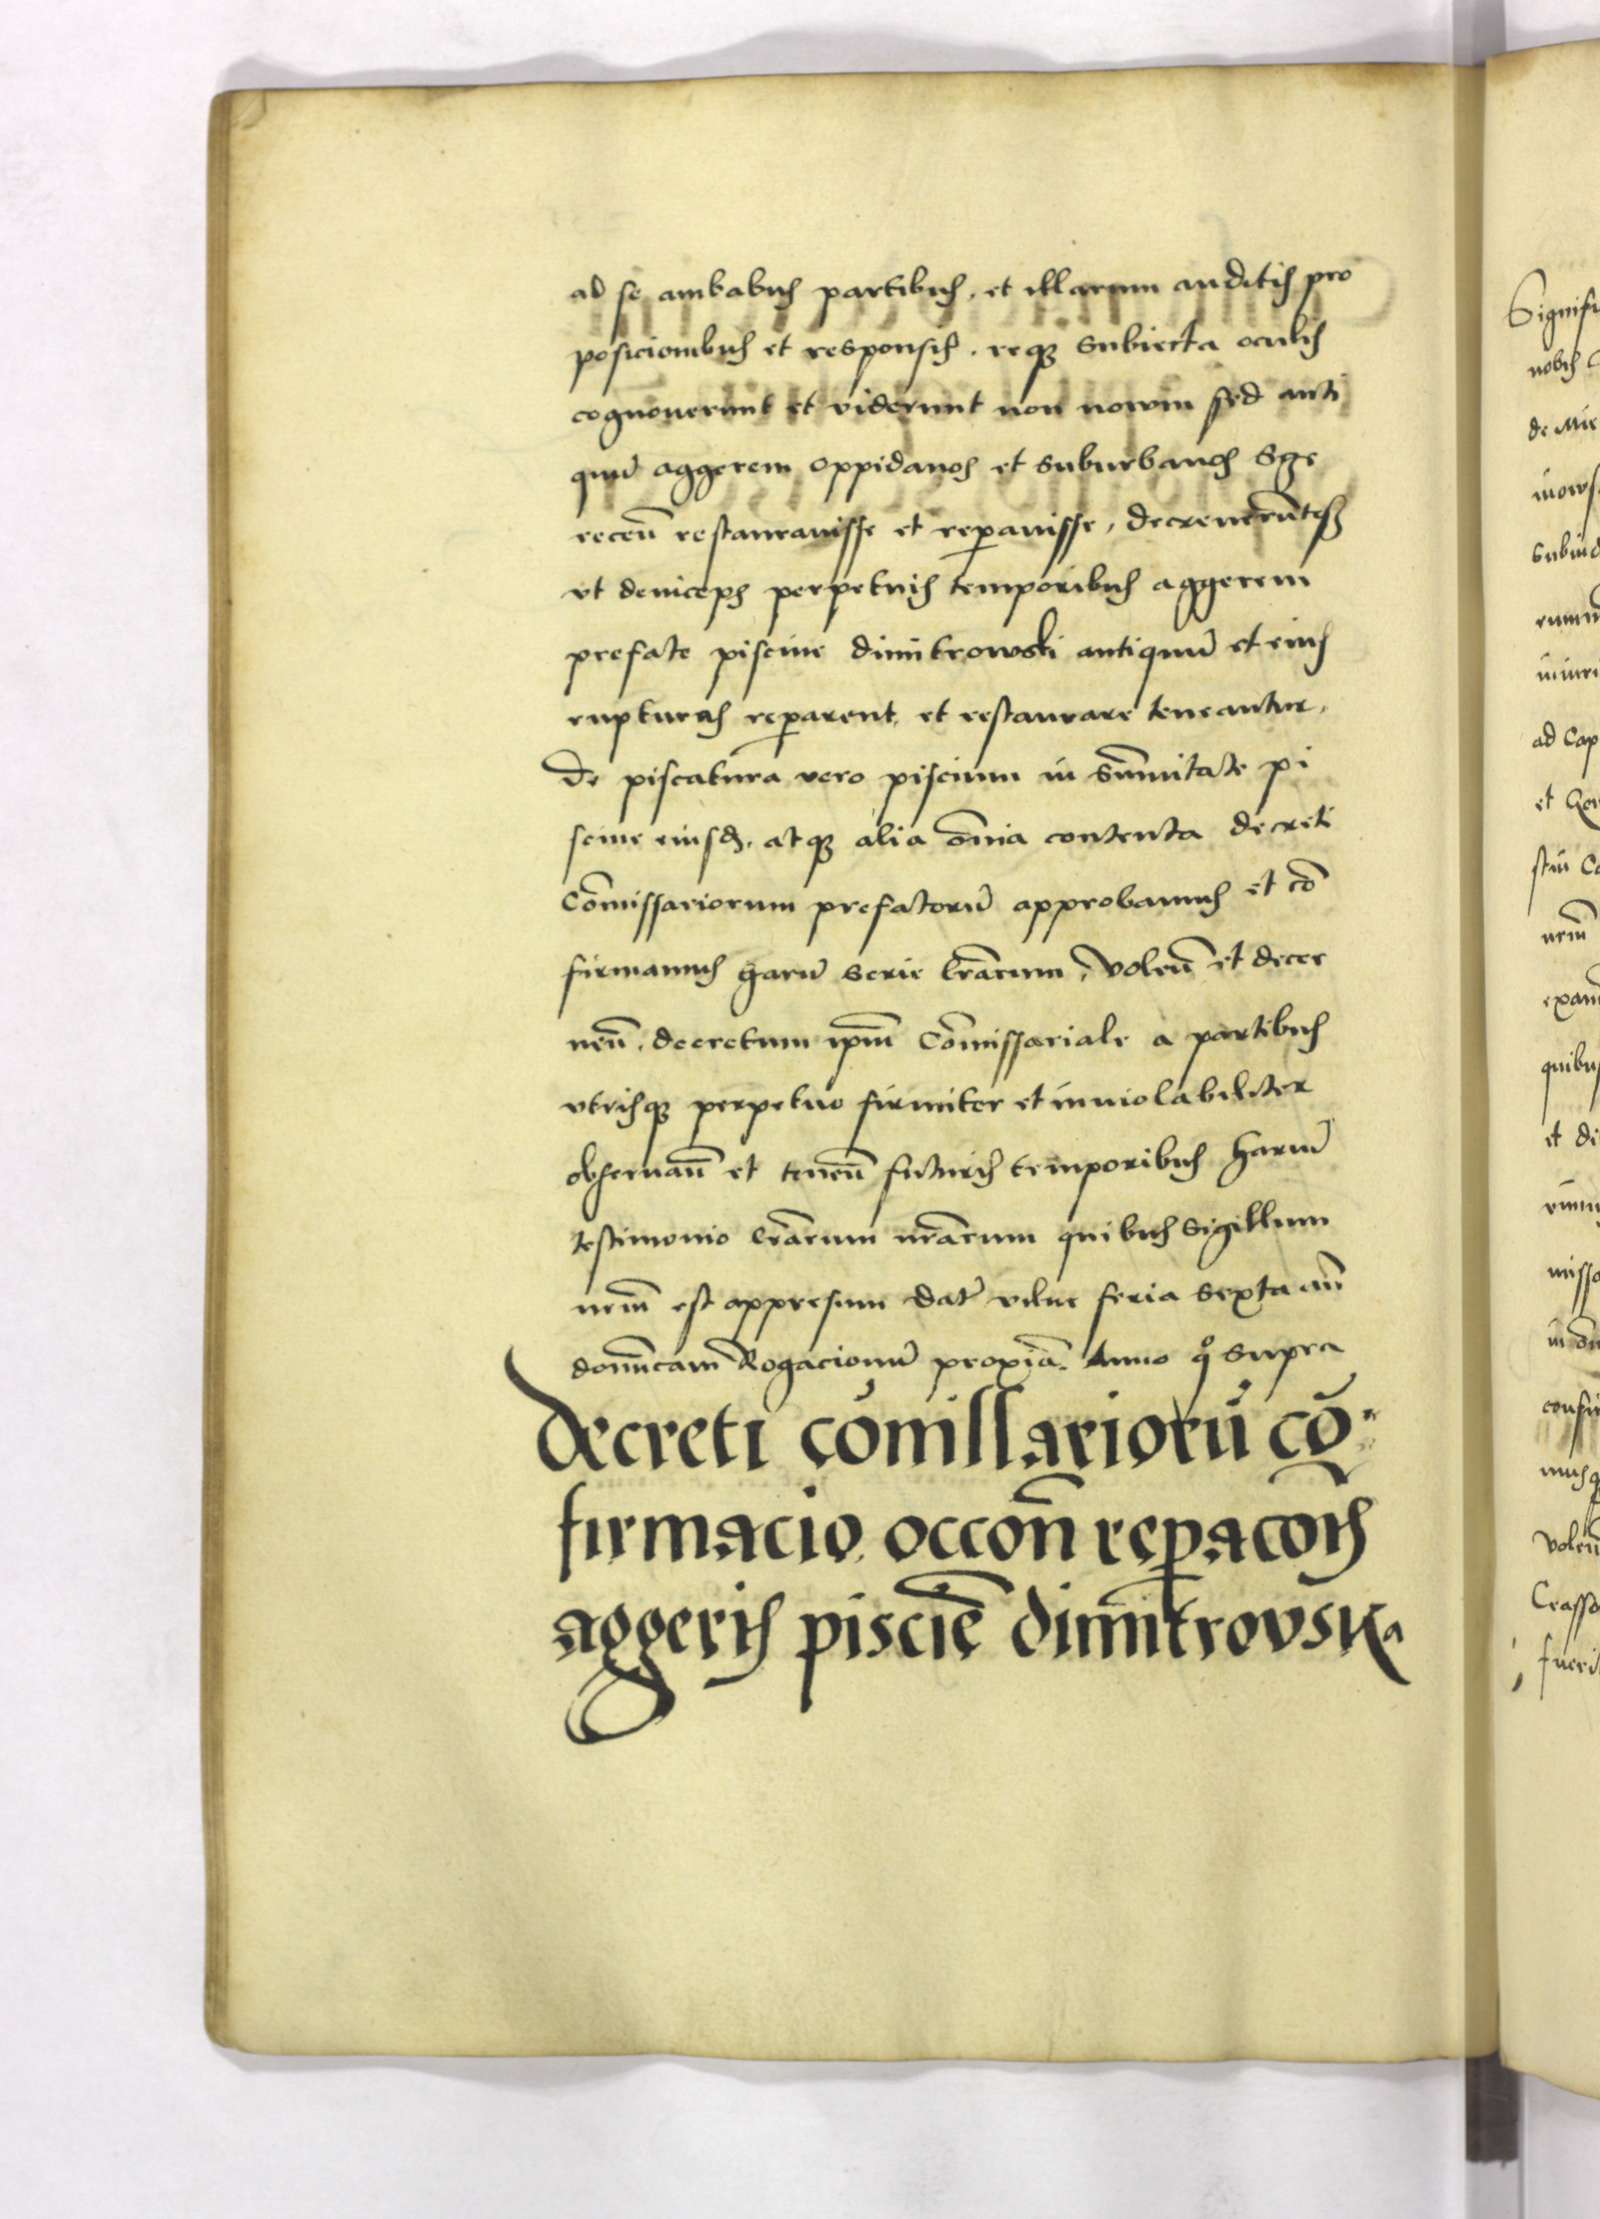 ad se ambabus partibus, et illarum auditis pro
posicionibus et responsis. reqꝫ subiecta oculis
cognouerunt et viderunt non nowm sed anti
quū aggerem oppidanos et suburbanos
receñ restaurauisse et repauisse, decreuerūtqꝫ
vt deinceps perpetuis temporibus aggerem
prefate piscine dimitrowski antiquū et eius
rupturas reparent et restaurare teneantur,
De piscatura vero piscium in sūmitate pi
scine eiusdꝫ. atqꝫ alia om̄ia contenta decreti
Com̄issariorum prefatorū approbamus et cō
firmamus harū serie lr̄arum, Voleñ et decer
neñ. decretum ipm̄ Com̄issariale a partibus
vtrisqꝫ perpetuo firmiter et inuiolabiliter
obseruañ et teneñ futuris temporibus harū
testimonio lr̄arum nr̄arum quibus Sigillum
nrm̄ est appresum dat̄ vilne feria sexta an̄
domīcam Rogacionū proxiā. Anno qº supra
Decreti cōmissariorū cō
firmacio occoñ repacoīs
aggeris pisciē dimitrovska
Signifi
nobis
de Mie
subind
ad Cap
et
exam
quibus
et di
missa
confir
Voleñ
Crasso
fueri